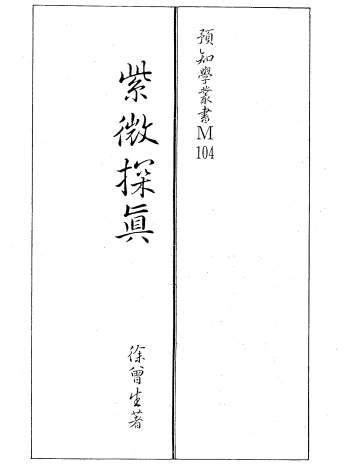 預知學叢書M
104
紫微探眞
徐曾生著